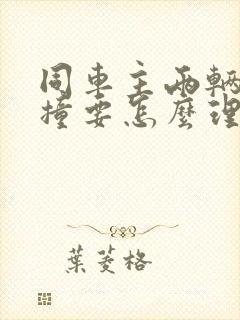 同車主兩輛
撞要怎麼理
葉菱格